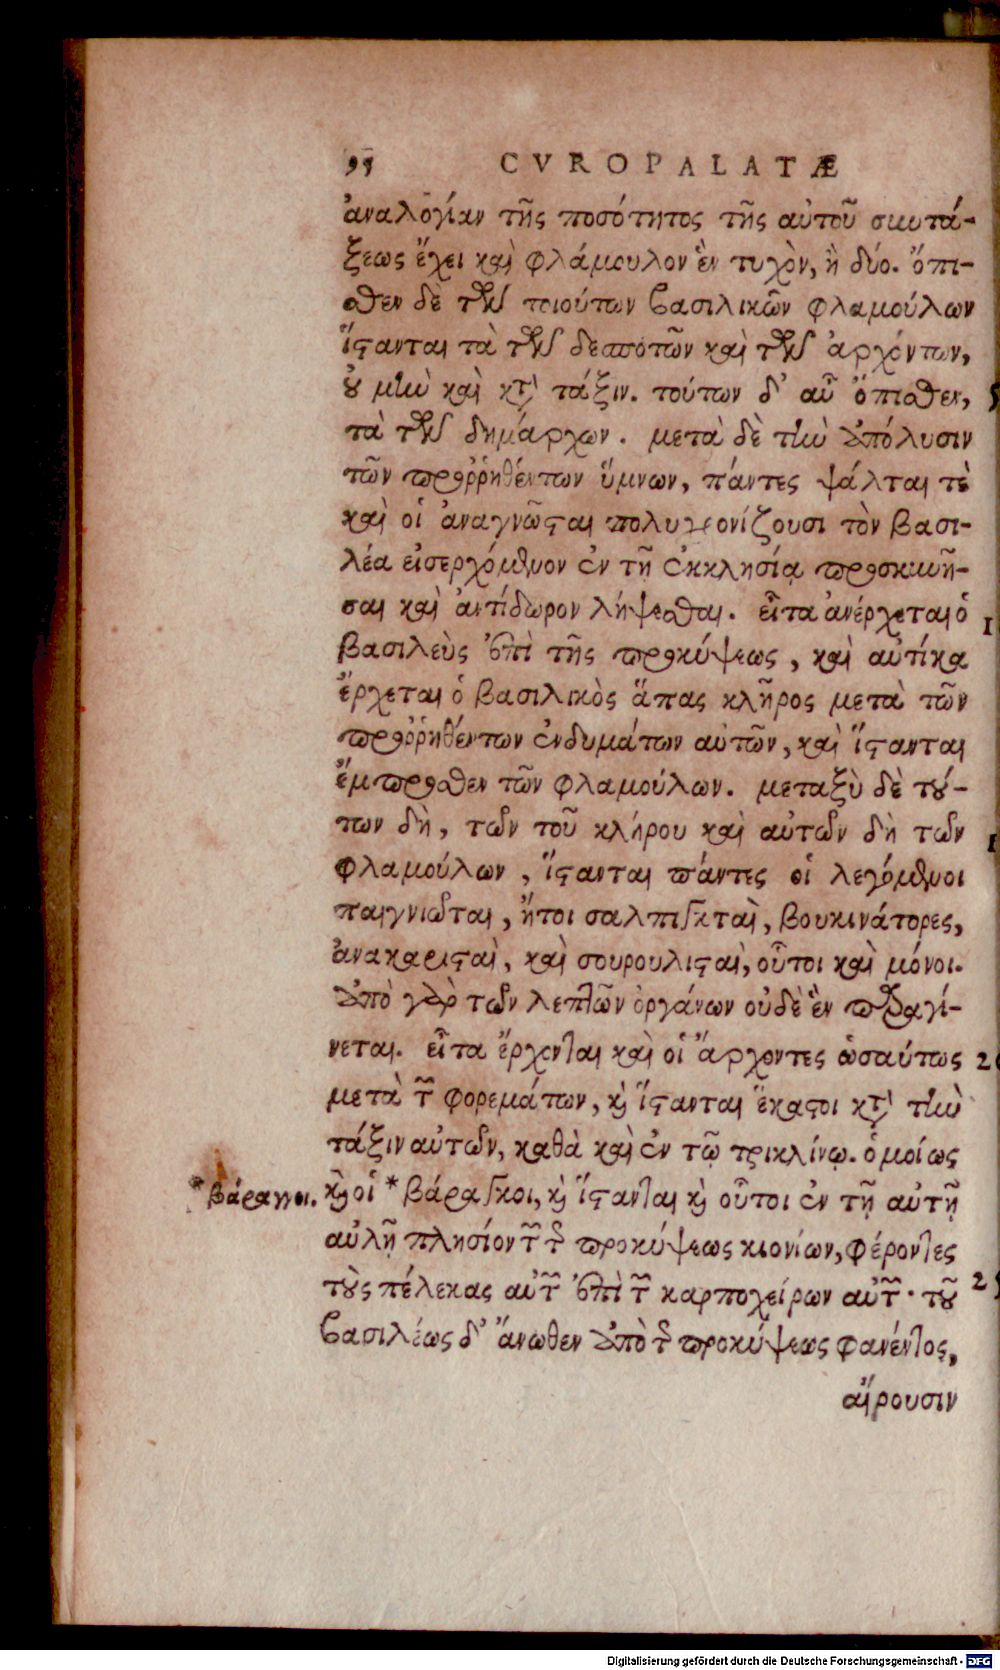 95 CVROPALATÆ
ἀναλογίαν τῆς ποσότητος τῆς αὐτοῦ συντά-
ξεως ἔχει καὶ φλάμουλον ἓν τυχὸν, ἢ δύο. ὄπι-
σθεν δὲ τῶν τοιούτων βασιλικῶν φλαμούλων
ἵστανται τὰ τῶν δεσποτῶν καὶ τῶν ἀρχόντων,
οὐ μὴν καὶ κτ τάξιν. τούτων δ’ αὖ ὄπισθεν, 5
τὰ τῶν δημάρχων. μετὰ δὲ τὴν ἀπόλυσιν
τῶν προῤῥηθέντων ὕμνων, πάντες ψάλται τὲ
καὶ οἱ ἀναγνῶσται πολυχρονίζουσι τὸν βασι-
λέα εἰσερχόμενον ἐν τῇ ἐκκλησίᾳ προσκυνῆ-
σαι καὶ ἀντίδωρον λήψεσθαι. εἶτα ἀνέρχεται ὁ 1
βασιλεὺς ἐπὶ τῆς προκύψεως, καὶ αὐτίκα
ἔρχεται ὁ βασιλικὸς ἅπας κλῆρος μετὰ τῶν
προῤῥηθέντων ἐνδυμάτων αὐτῶν, καὶ ἵστανται
ἔμπροσθεν τῶν φλαμούλων. μεταξὺ δὲ τού-
των δὴ, τῶν τοῦ κλήρου καὶ αὐτῶν δὴ τῶν 1
φλαμούλων, ἵστανται πάντες οἱ λεγόμενοι
παιγνιῶται, ἤτοι σαλπιγκταὶ, βουκινάτορες,
ἀνακαρισταὶ, καὶ σουρουλισταὶ, οὗτοι καὶ μόνοι.
ἀπὸ γὰρ τῶν λεπτῶν ὀργάνων οὐδὲ ἓν παραγί-
νεται. εἶτα ἔρχονται καὶ οἱ ἄρχοντες ὡσαύτως 20
μετὰ τῶν φορεμάτων, καὶ ἵστανται ἕκαστοι κτ τὴν
τάξιν αὐτῶν, καθὰ καὶ ἐν τῷ τρικλίνῳ. ὁμοίως
*βάραγγοι. καὶ οἱ *βάραγκοι, καὶ ἵστανται καὶ οὗτοι ἐν τῇ αὐτῇ
αὐλῇ πλησίον τῶν τῆς προκύψεως κιονίων, φέροντες
τοὺς πέλεκας αὐτῶν ἐπὶ τῶν καρποχείρων αὐτῶν· τοῦ 25
βασιλέως δ’ ἄνωθεν ἀπὸ τῆς προκύψεως φανέντος,
αἴρουσιν
Digitalisierung gefördert durch die Deutsche Forschungsgemeinschaft - DFG